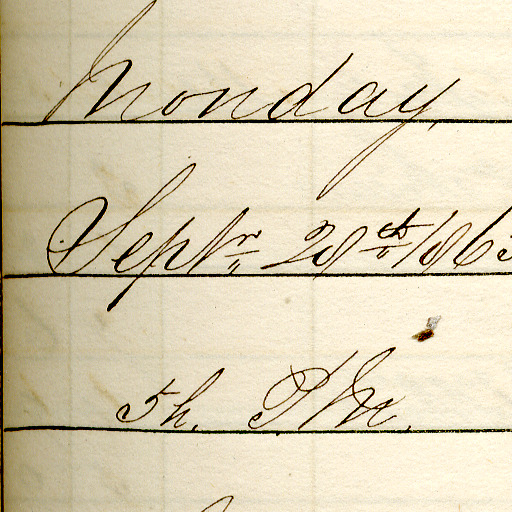 Monday
Septr 28th 1863
5h. PM.